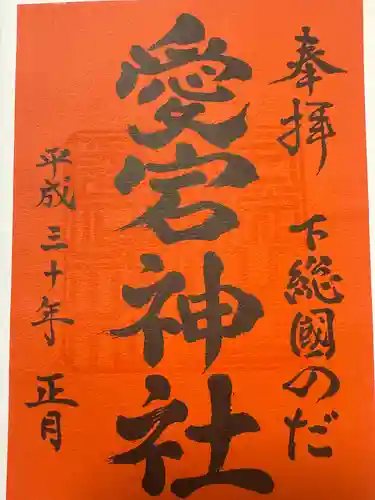 奉拝 下総國のだ
愛宕神社
平成三十年 正月